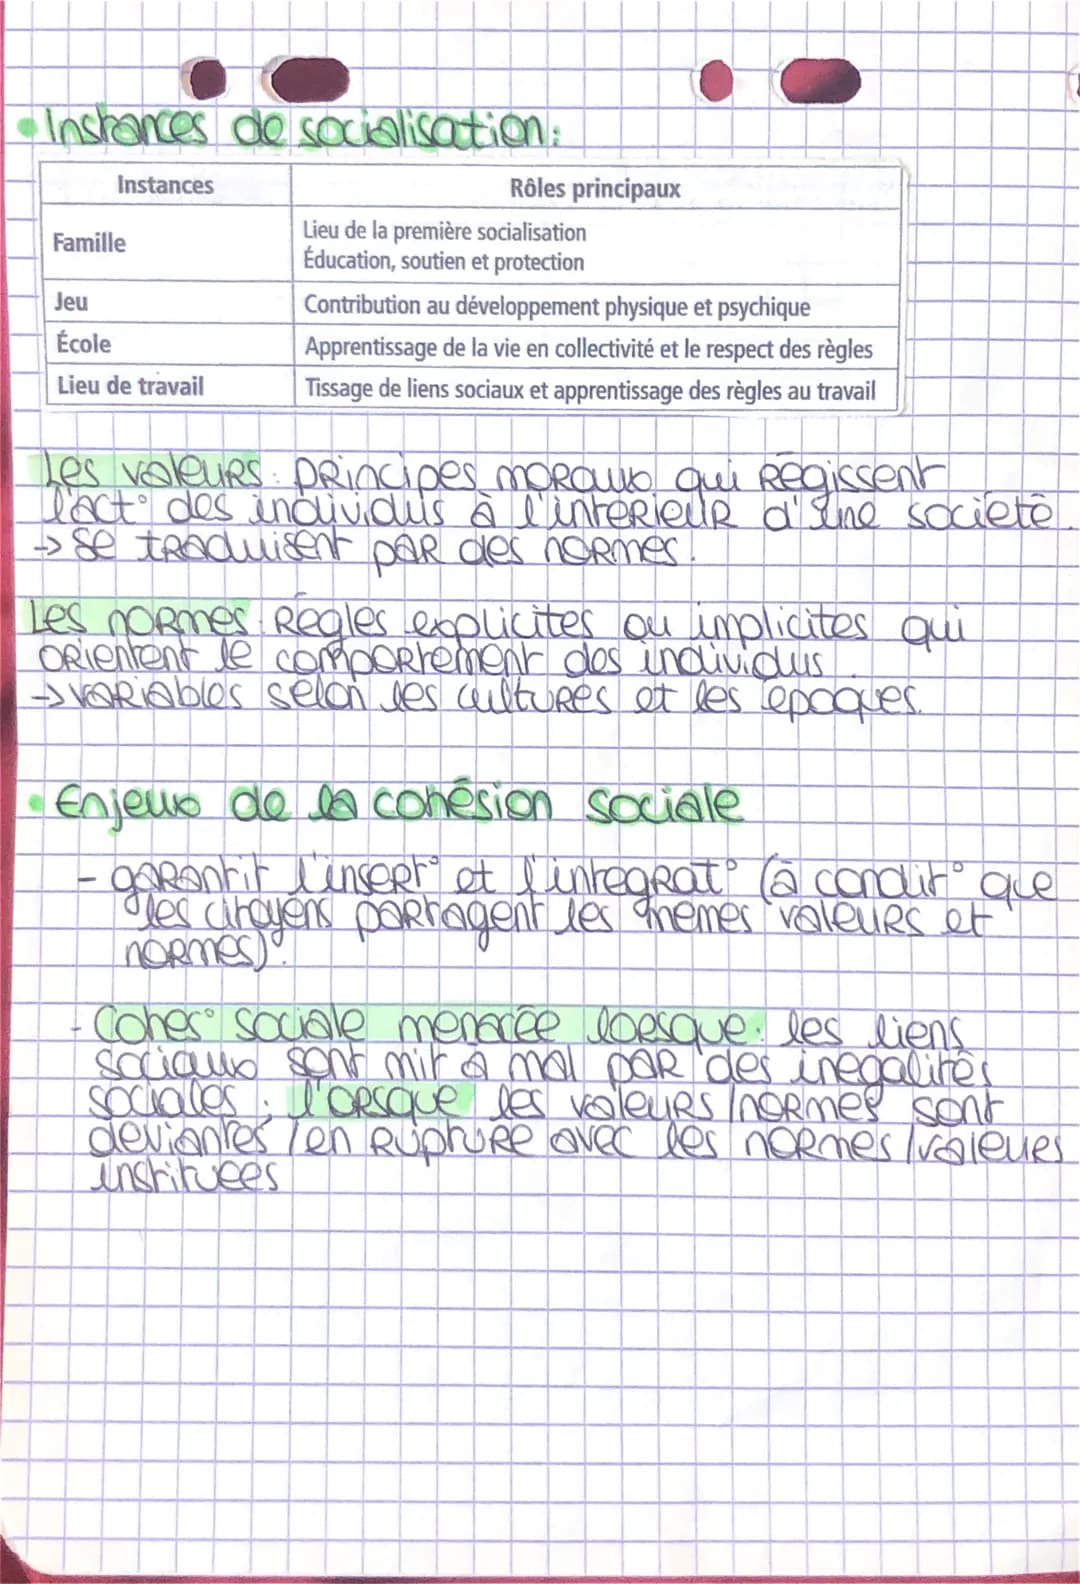 • Instances de socialisation :
Instances Rôles principaux
Famille Lieu de la première socialisation
Éducation, soutien et protection
Jeu Contribution au développement physique et psychique
École Apprentissage de la vie en collectivité et le respect des règles
Lieu de travail Tissage de liens sociaux et apprentissage des règles au travail
Les valeurs : principes moraux qui régissent
l'act° des individus à l'intérieur d'une société.
→ se traduisent par des normes.
Les normes : Règles explicites ou implicites qui
orientent le comportement des individus.
→ variables selon les cultures et les époques.
• Enjeux de la cohésion sociale
- garantit l'insert° et l'intégrat° (à condit° que
les citoyens partagent les mêmes valeurs et
normes).
- Cohés° sociale menacée lorsque : les liens
sociaux sont mit à mal par des inégalités
sociales ; l'orsque les valeurs/normes sont
déviantes / en rupture avec les normes/valeurs
instituées